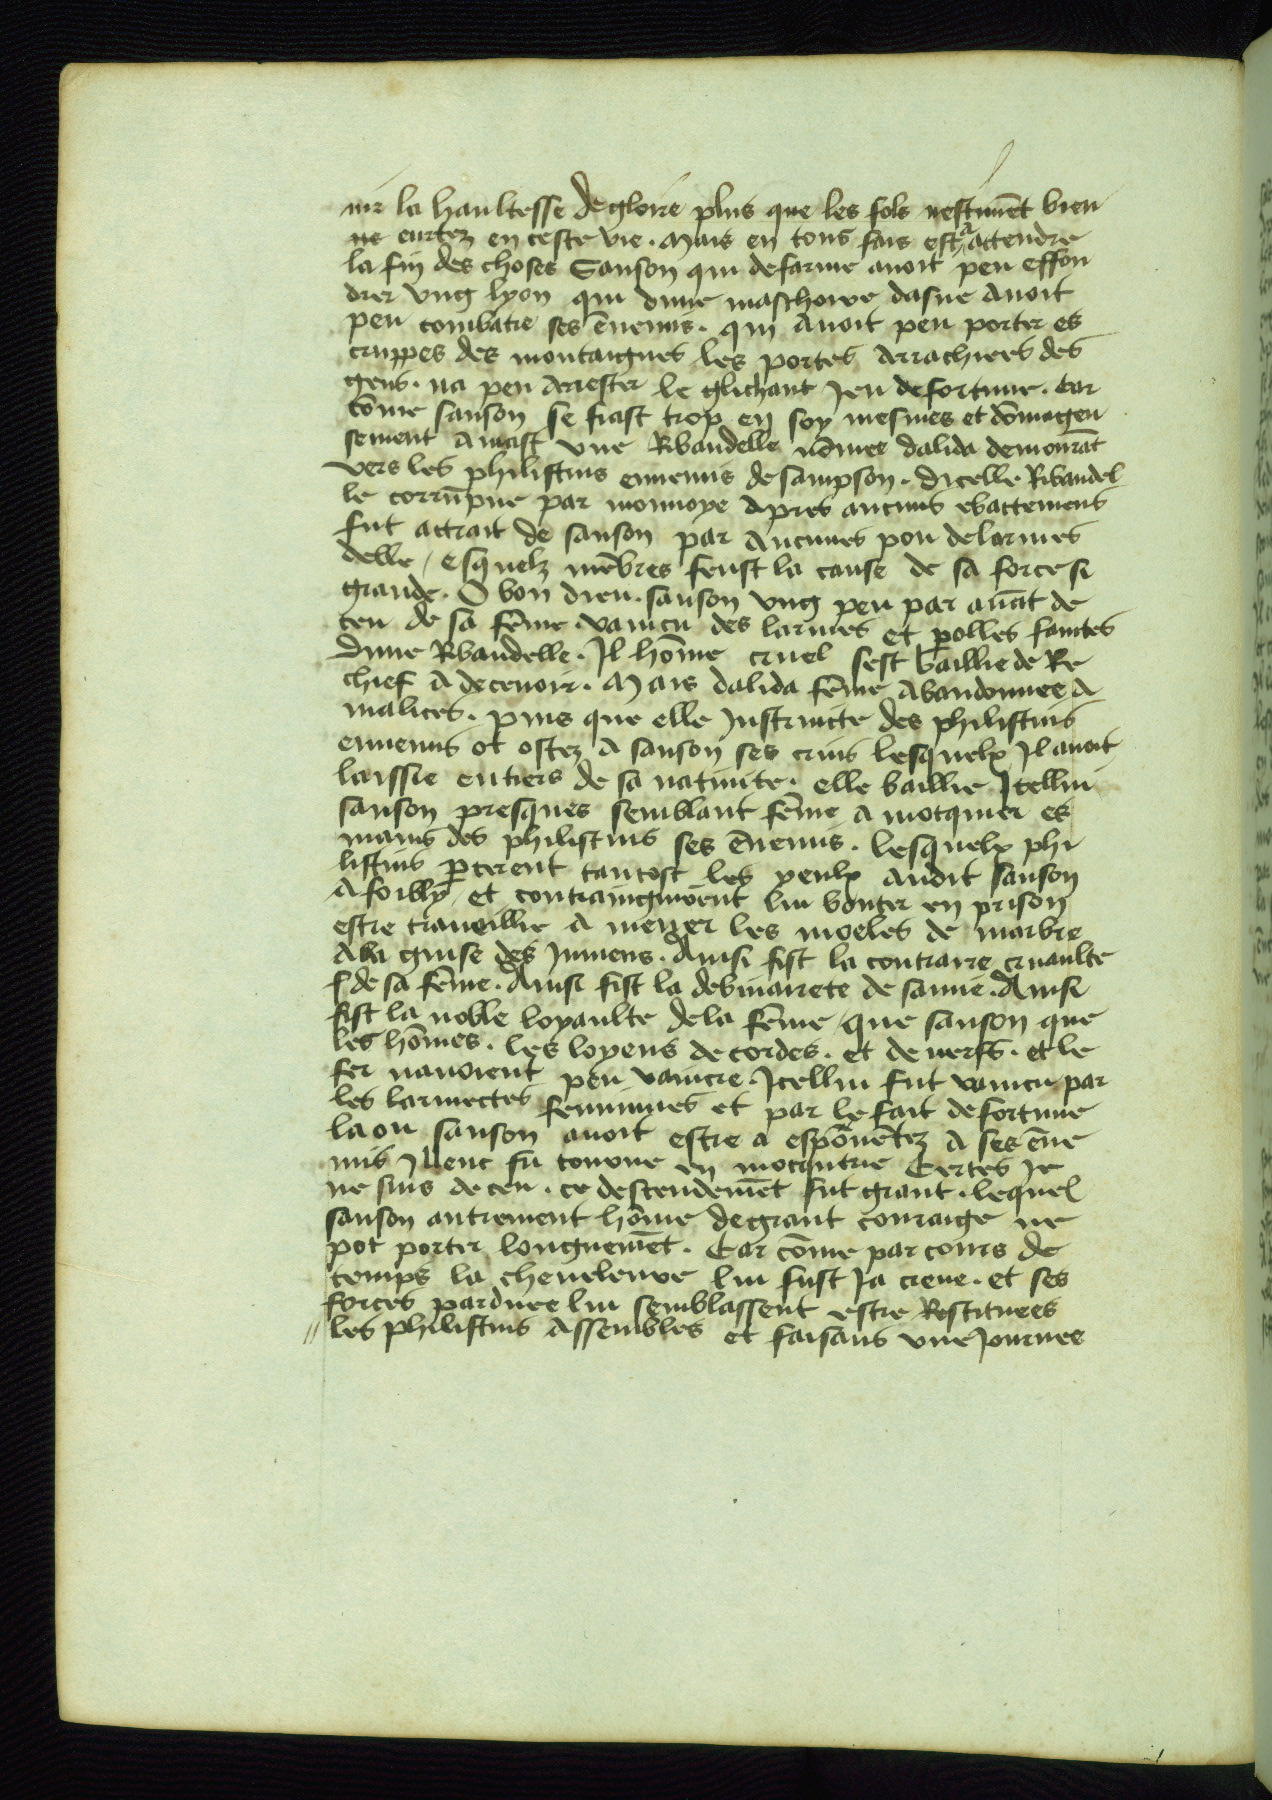 nir la haultesse de gloire plus que les fols nestimēt bien
ne eurtez en ceste vie. Mais en tous fais est a attendre
la fin des choses Sanson qui desarme auoit peu effon
drer vng lyon qui dune maschoire dasne auoit
peu combatre ses ēnemis. qui auoit peu porter es
cruppes des montaignes les portes arrachiees des
gens. na peu arrester le glichant jeu de fortune. Car
cōme sanson se fiast trop en soy mesmes et dōmageu
sement amast vne Ribaudelle nōmee dalida demourāt
vers les philistins ennemis de sampson. Dicelle Ribaudel
le corrūpue par monnoye apres aucuns esbattemens
fut attrait de sanson par aucunes pou de larmes
delle, esquelz mēbres feust la cause de sa force si
grande. O bon dieu. sanson vng peu par auāt de
ceu de sa fēme. vaincu des larmes et polles faintes
dune Ribaudelle. Il hōme cruel sest baillie de Re
chief a deceuoir. Mais dalida fēme abandonnee a
malices. puis que elle Instruicte des philistins
ennemis ot ostez a sanson ses crins lesquelx Il auoit
laissie entiers de sa natiuite. elle baillie Icellui
sanson presques semblant fēme a mocquier es
mains des philistins ses ēnemis. lesquelx phi
listins pcerent tantost les yeulx audit sanson
afoibly et contraingnirent lui bouter en prison
estre trauaillie a mener les moeles de marbre
a la guise des Jumens. Ainsi fist la contraire cruaulte
de sa fēme. Ainsi fist la debonairete de samie. Ainsi
fist la noble loyaulte de la fēme, que sanson que
les hōmes. les loyens de cordes. et de nerfs. et le
fer nauoient peu vaincre. Icellui fut vaincu par
les larmectes feminines et par le fait de fortune
la ou sanson auoit estre a espōuentez a ses ēne
mis Illenc fu tourne en mocquerie Certes je
ne suis deceu. ce descendemēt fut grant. lequel
sanson autrement hōme de grant couraige ne
pot porter longuemēt. Car cōme par cours de
temps la cheueleure lui fust Ja creue. et ses
forces pardues lui semblassent estre Restituees
les philistins assembles et faisans vne journee